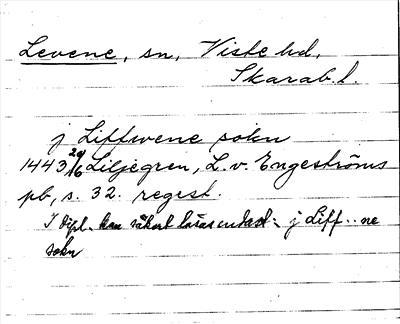 Levene, sn, Viste hd,
Skarab. l.
j Liffwene sokn
1443 20/6 Liljegren, L. v. Engeströms
pb, s. 32. regest.
I dipl. kan säkert läsas endast: j Liff..ne
sokn